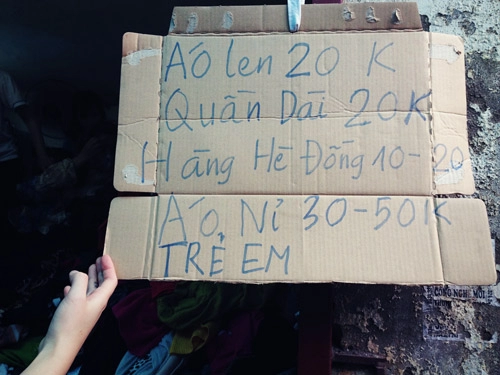 ÁO len 20 K
Quần Dài 20K
Hàng Hè Đồng 10-20
ÁO Nỉ 30-50K
TRẺ EM